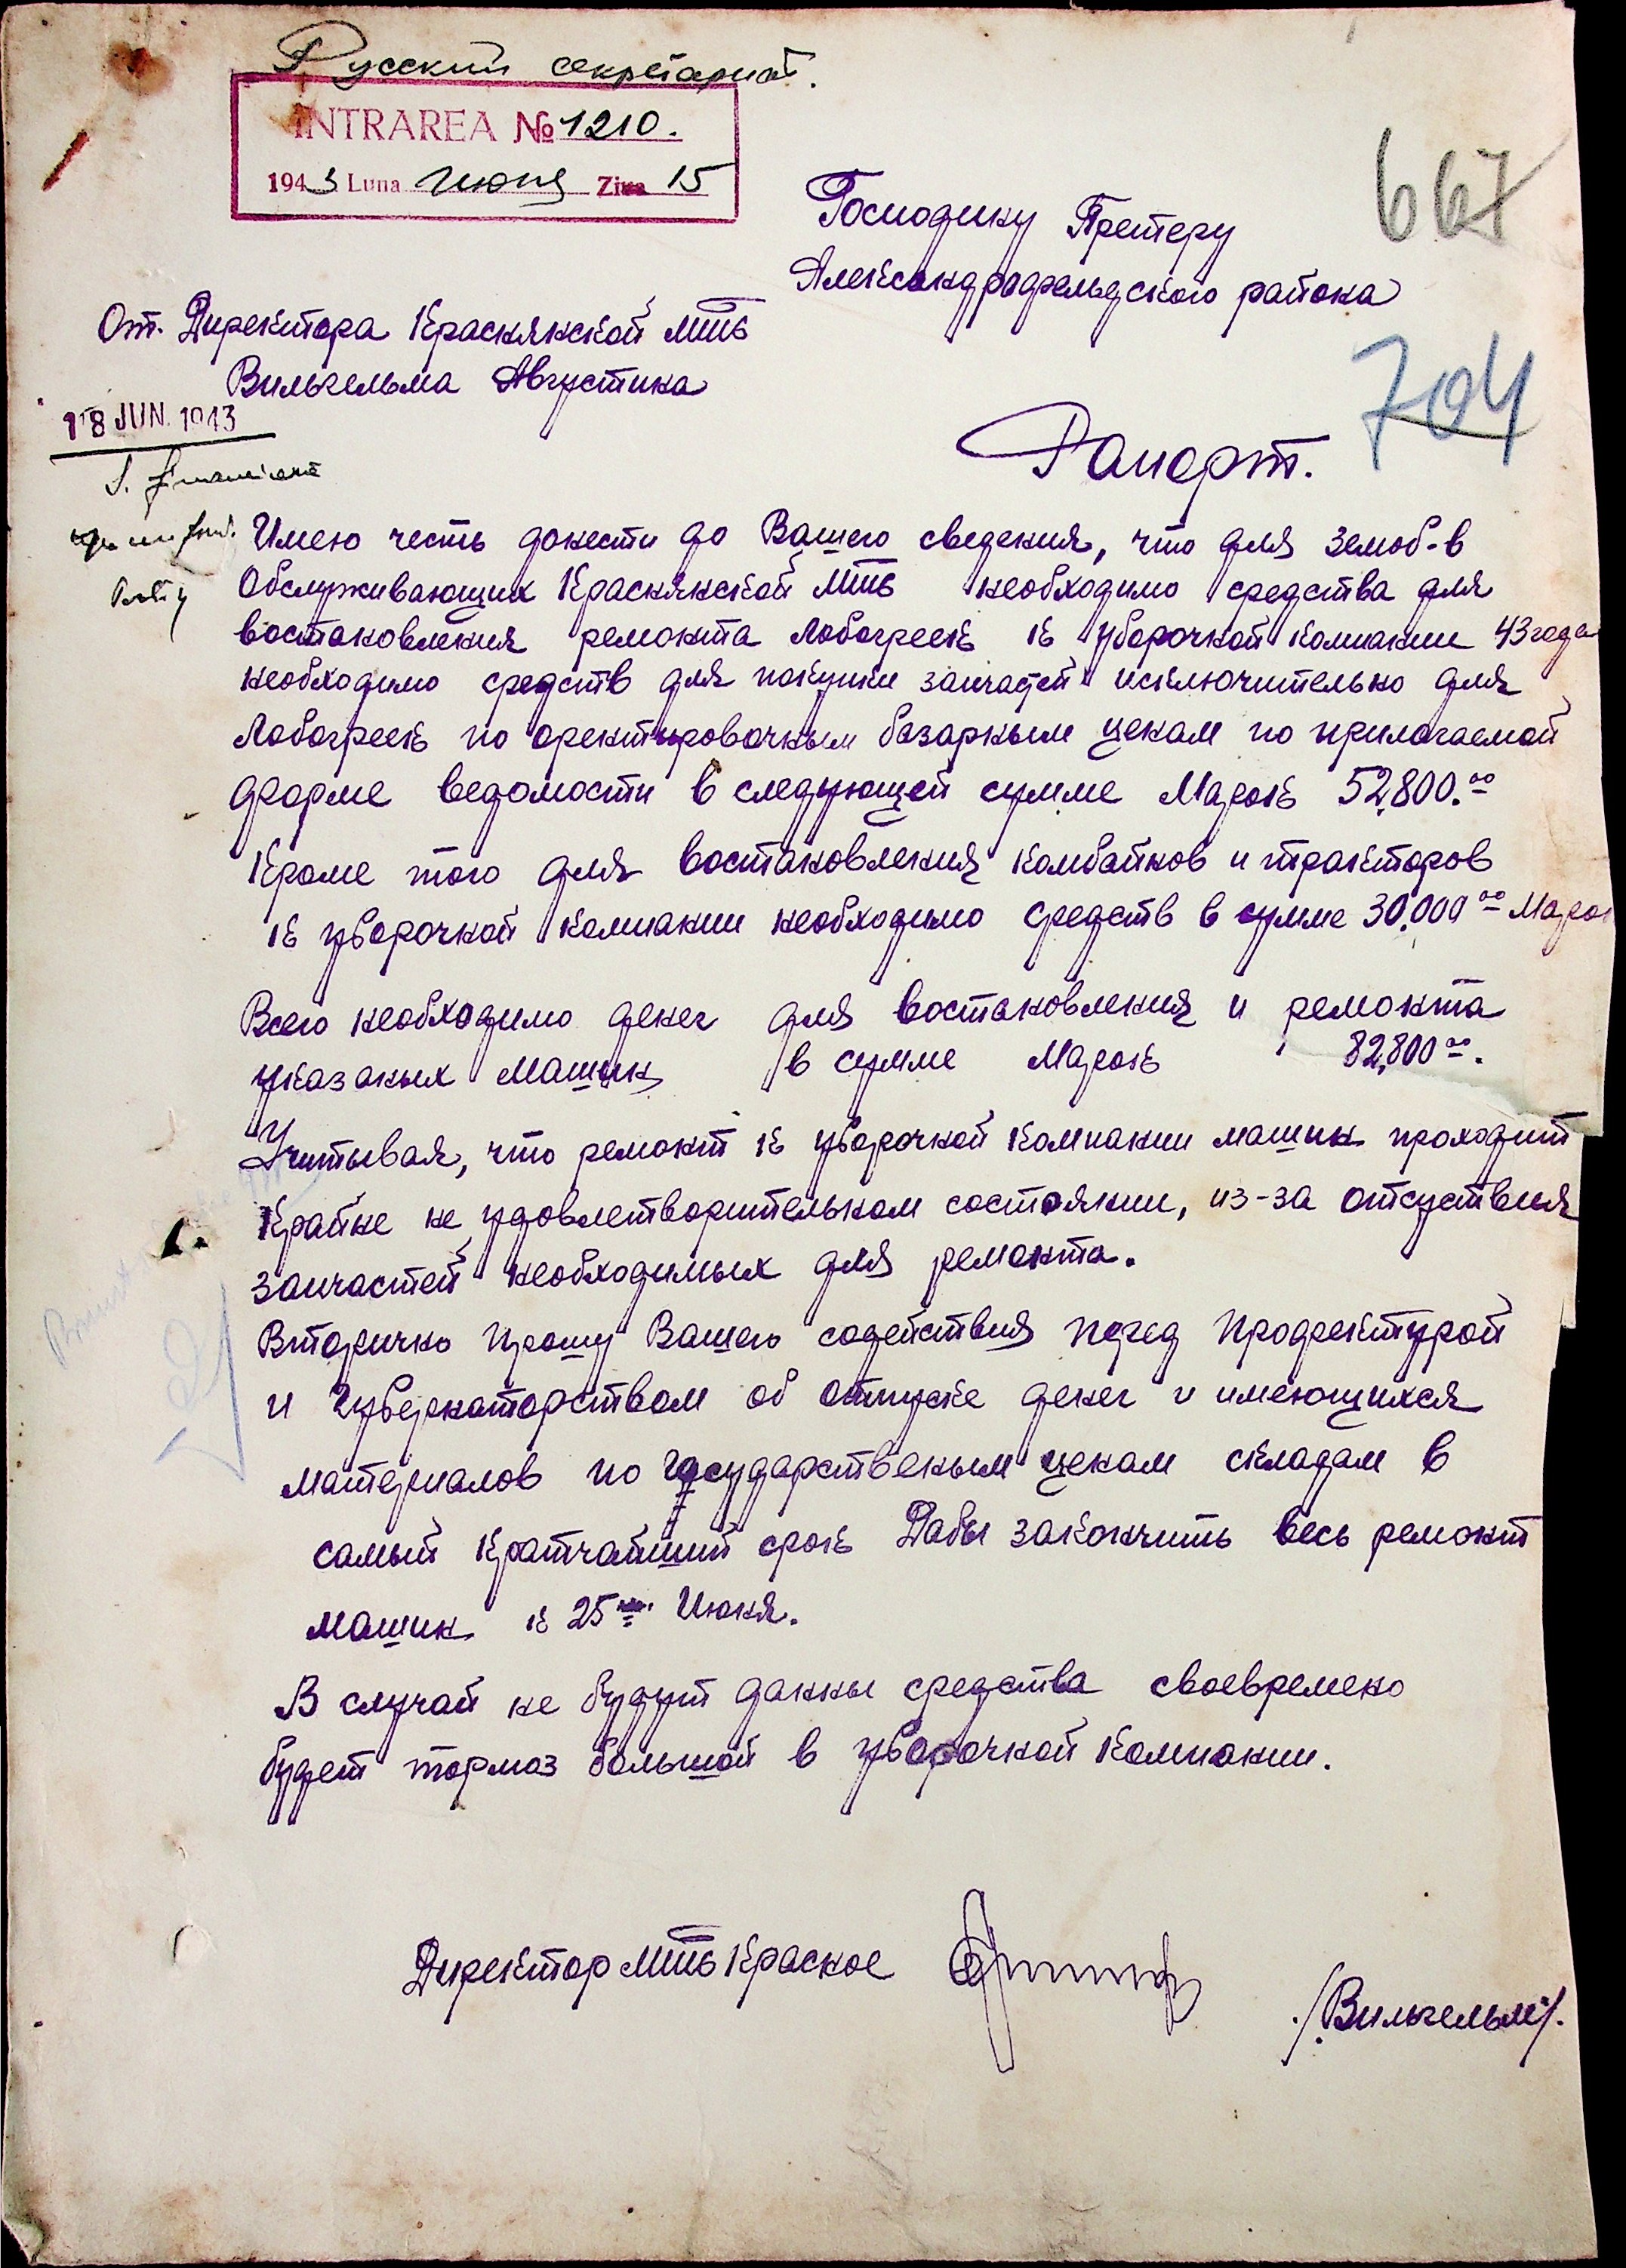 Русский секретариат.
INTRAREA № 1210.
1943 Luna июня Ziua 15
667
Господину Претеру
Александрфельдского района
От Директора Краснянской МТС
Вильгельма Августина
704
18 JUN. 1943
S. Financiară
Рапорт.
Имею честь донести до Вашего сведения, что для земоб-в
Обслуживающих Краснянской МТС необходимо средства для
востановления ремонта Лобогреек к уборочной компании 43 года
необходимо средств для покупки запчастей исключительно для
Лобогреек по орентировочным базарным ценам по прилагаемой
форме ведомости в следующей сумме Марок 52,800.оо
Кроме того для востановления комбайнов и тракторов
к уборочной компании необходимо средств в сумме 30.000 оо Марок
Всего необходимо денег для востановления и ремонта
указаных машин в сумме Марок 82,800 оо.
Учитывая, что ремонт к уборочной компании машин проходит
Крайне не удовлетворительном состоянии, из-за отсуствия
запчастей необходимых для ремонта.
Вторично прошу Вашего содействия перед Профектурой
и Губернаторством об отпуске денег и имеющихся
материалов по государственым ценам складам в
самый кратчайший срок Дабы закончить весь ремонт
машин к 25 Июня.
В случай не будут данны средства своевремено
будет тормоз большой в уборочной Компании.
Директор МТС Красное
/Вильгельм/.